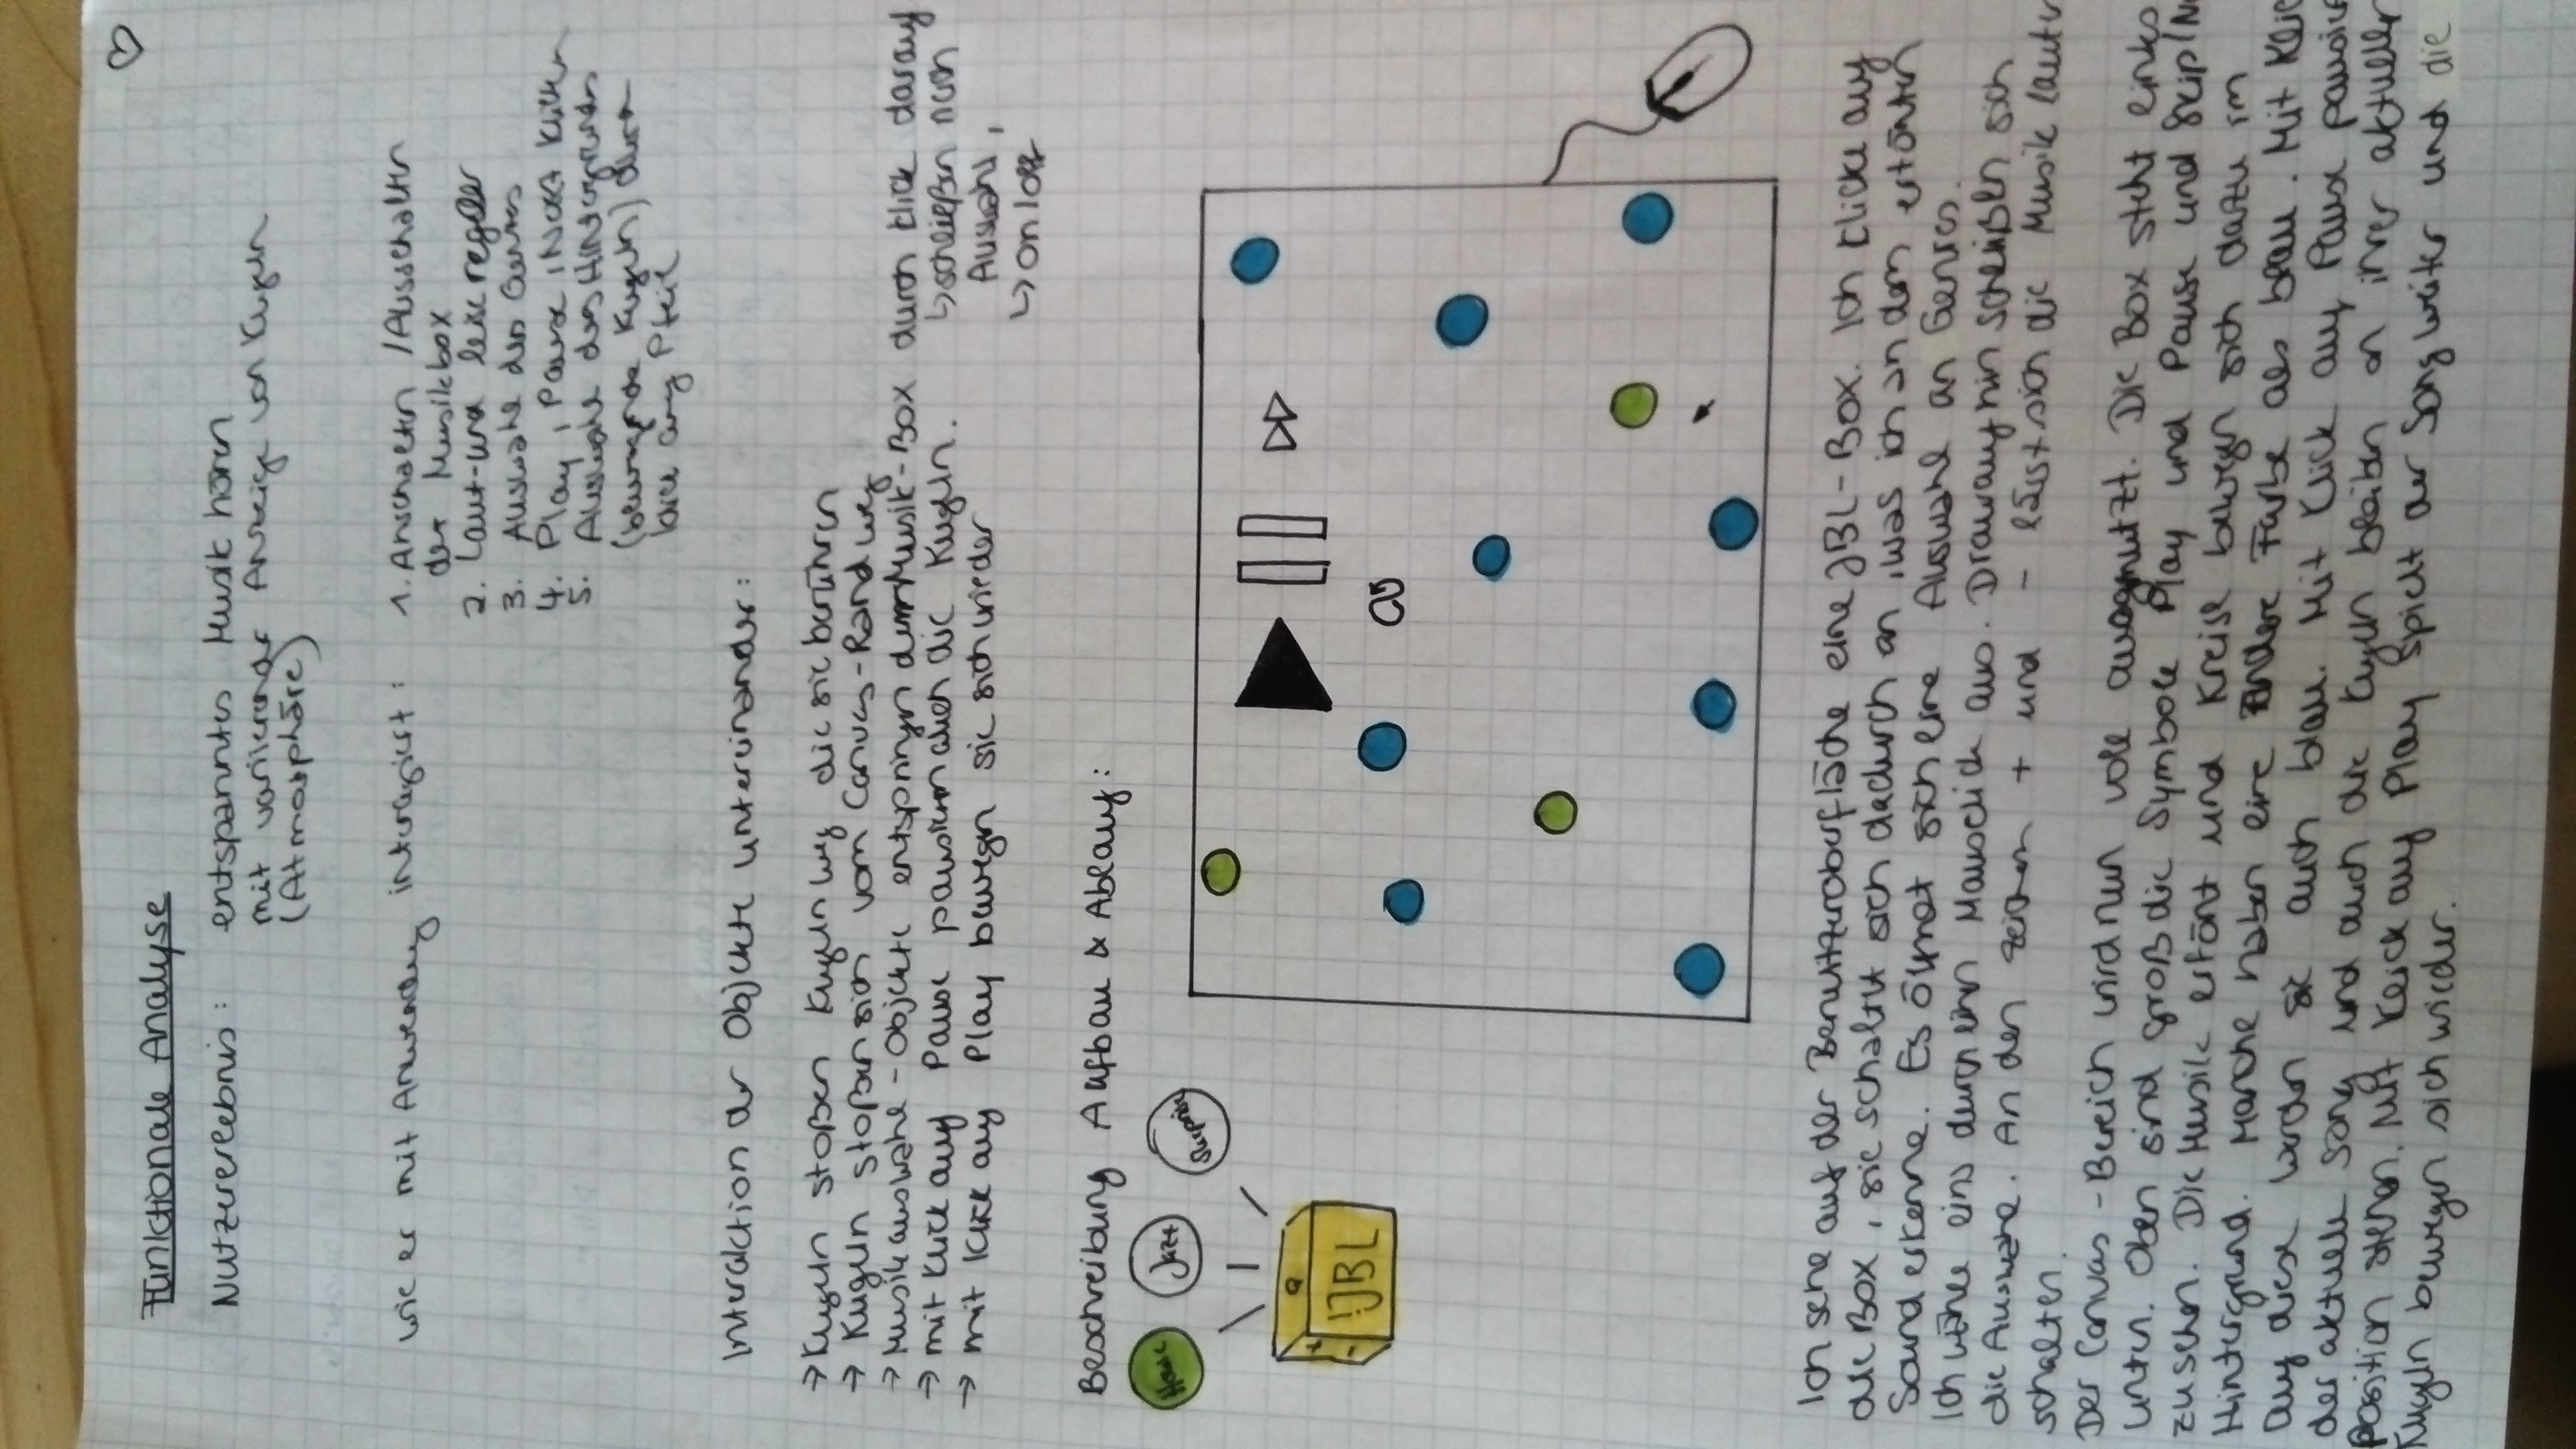 Funktionale Analyse
Nutzererlebnis: entspanntes Musik hören
mit variierender Anzeige von Kugeln
(Atmosphäre)
wie er mit Anwendung interagiert: 1. Anschalten / Ausschalten
der Musikbox
2. Laut- und leise regler
3. Auswahl des Genres
4. Play, Pause, Next klicken
5. Auswahl des Hintergrundes
(bewegende Kugeln) durch
klick auf Pfeil
Interaktion der Objekte untereinander:
→ Kugeln stoßen Kugeln weg die sie berühren
→ Kugeln stoßen sich vom Canvas-Rand weg
→ Musikauswahl-Objekte entspringen der Musik-Box durch klick darauf
→ mit Klick auf Pause pausieren auch die Kugeln. ↳ schließen nach
Auswahl,
→ mit Klick auf Play bewegen sie sich wieder
↳ on/off
Beschreibung Aufbau & Ablauf:
Jazz
Surprise
+
-
!JBL
Ich sehe auf der Benutzeroberfläche eine JBL-Box. Ich klicke auf
die Box, sie schaltet sich dadurch an, was ich an dem ertönten
Sound erkenne. Es öffnet sich eine Auswahl an Genres.
Ich wähle eins durch einen Mausclick aus. Drauraufhin schließen sich
die Auswahl. An den zeichen + und - lässt sich die Musik lauter
schalten.
Der Canvas-Bereich wird nun voll ausgenutzt. Die Box steht links
unten. Oben sind groß die Symbole Play und Pause und Skip/Ne
zu sehen. Die Musik ertönt und Kreise bewegen sich dazu im
Hintergrund. Manche haben eine andere Farbe als blau. Mit Klic
auf diese werden sie auch blau. Mit Klick auf Pause pausie
der aktuelle Song und auch die Kugeln bleiben an ihrer aktuellen
Position stehen. Mit Klick auf Play spielt der Song weiter und die
Kugeln bewegen sich wieder.